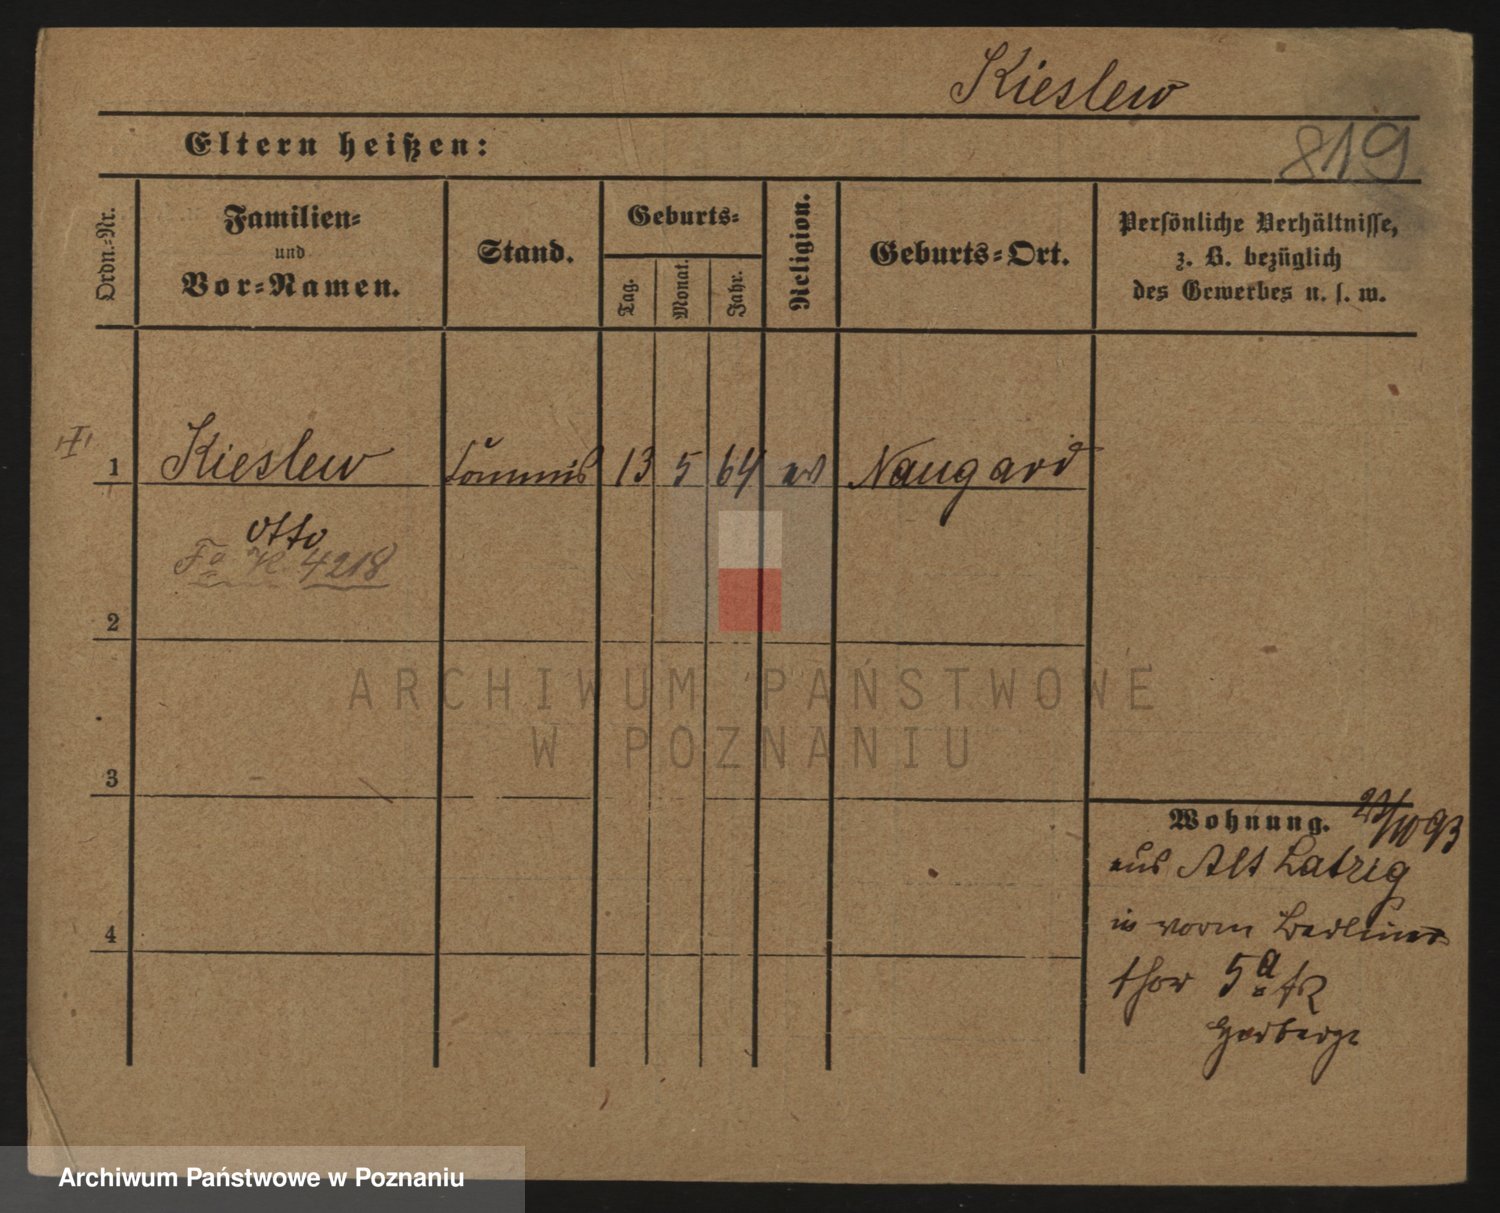 Kieslew
Eltern heißen:
819
Ordn.-Nr.
Familien-
und
Vor-Namen.
Stand.
Geburts-
Tag.
Monat.
Jahr.
Religion.
Geburts-Ort.
Persönliche Verhältnisse,
z. B. bezüglich
des Gewerbes u. s. w.
1 Kieslew Commis 13 5 64 ev Naugard
Otto
4218
2
3
4
Wohnung. 23/10 93
aus Alt Latzig
in vorm Berliner
thor 5a
Herberge
ARCHIWUM PAŃSTWOWE
W POZNANIU
Archiwum Państwowe w Poznaniu